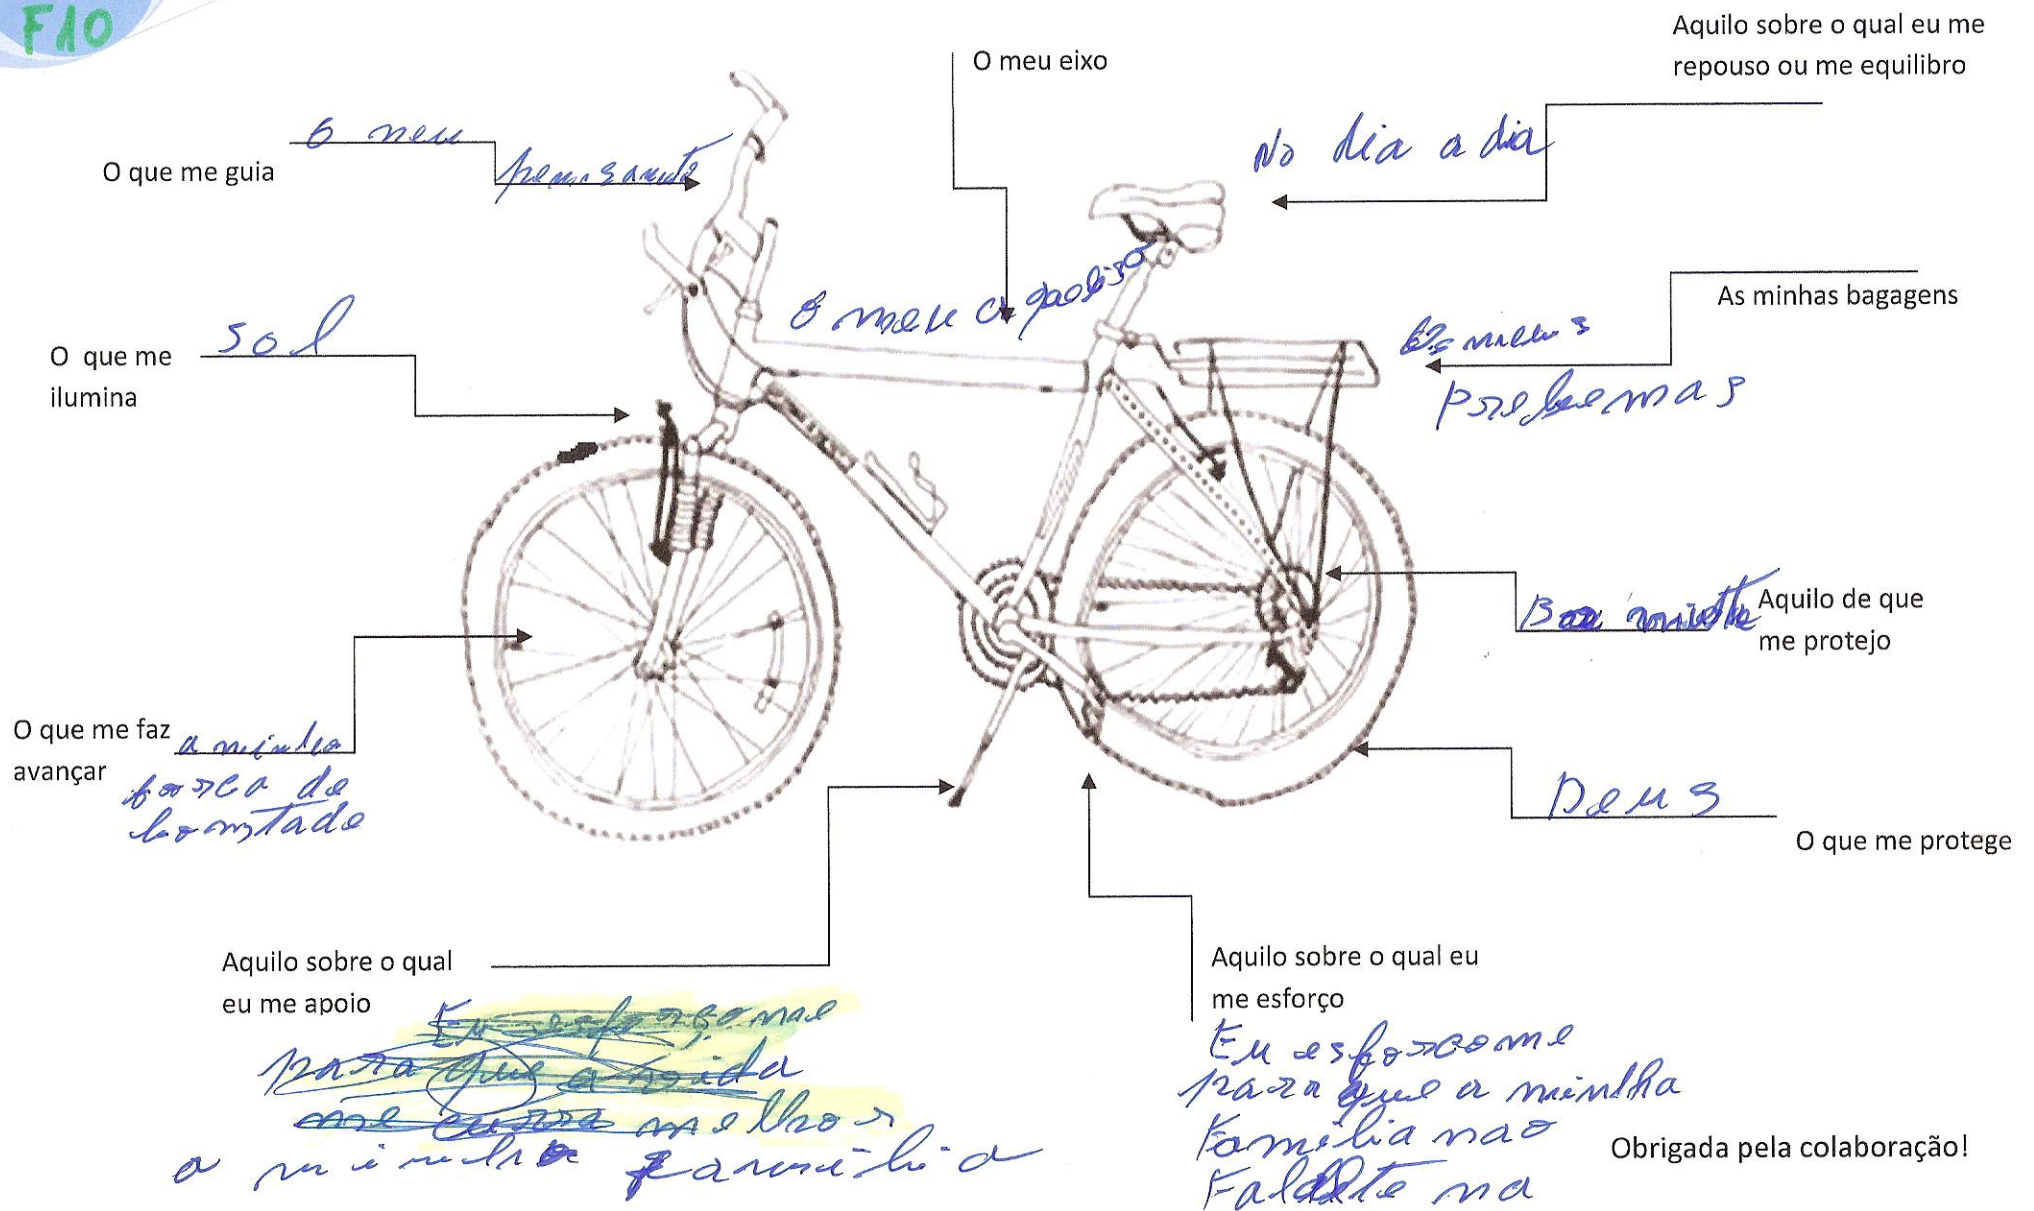 F10
O meu eixo
Aquilo sobre o qual eu me
repouso ou me equilibro
O que me guia
o meu
pensamento
No dia a dia
O meu
As minhas bagagens
O que me
ilumina
sol
Os meus
problemas
Aquilo de que
me protejo
O que me faz
avançar
a minha
força de
bontade
Deus
O que me protege
Aquilo sobre o qual
eu me apoio
Eu esforçome
para que a vida
me curra melhor
a minha familia
Aquilo sobre o qual eu
me esforço
Eu esforcome
para que a minlha
Familia nao
Falte na
Obrigada pela colaboração!